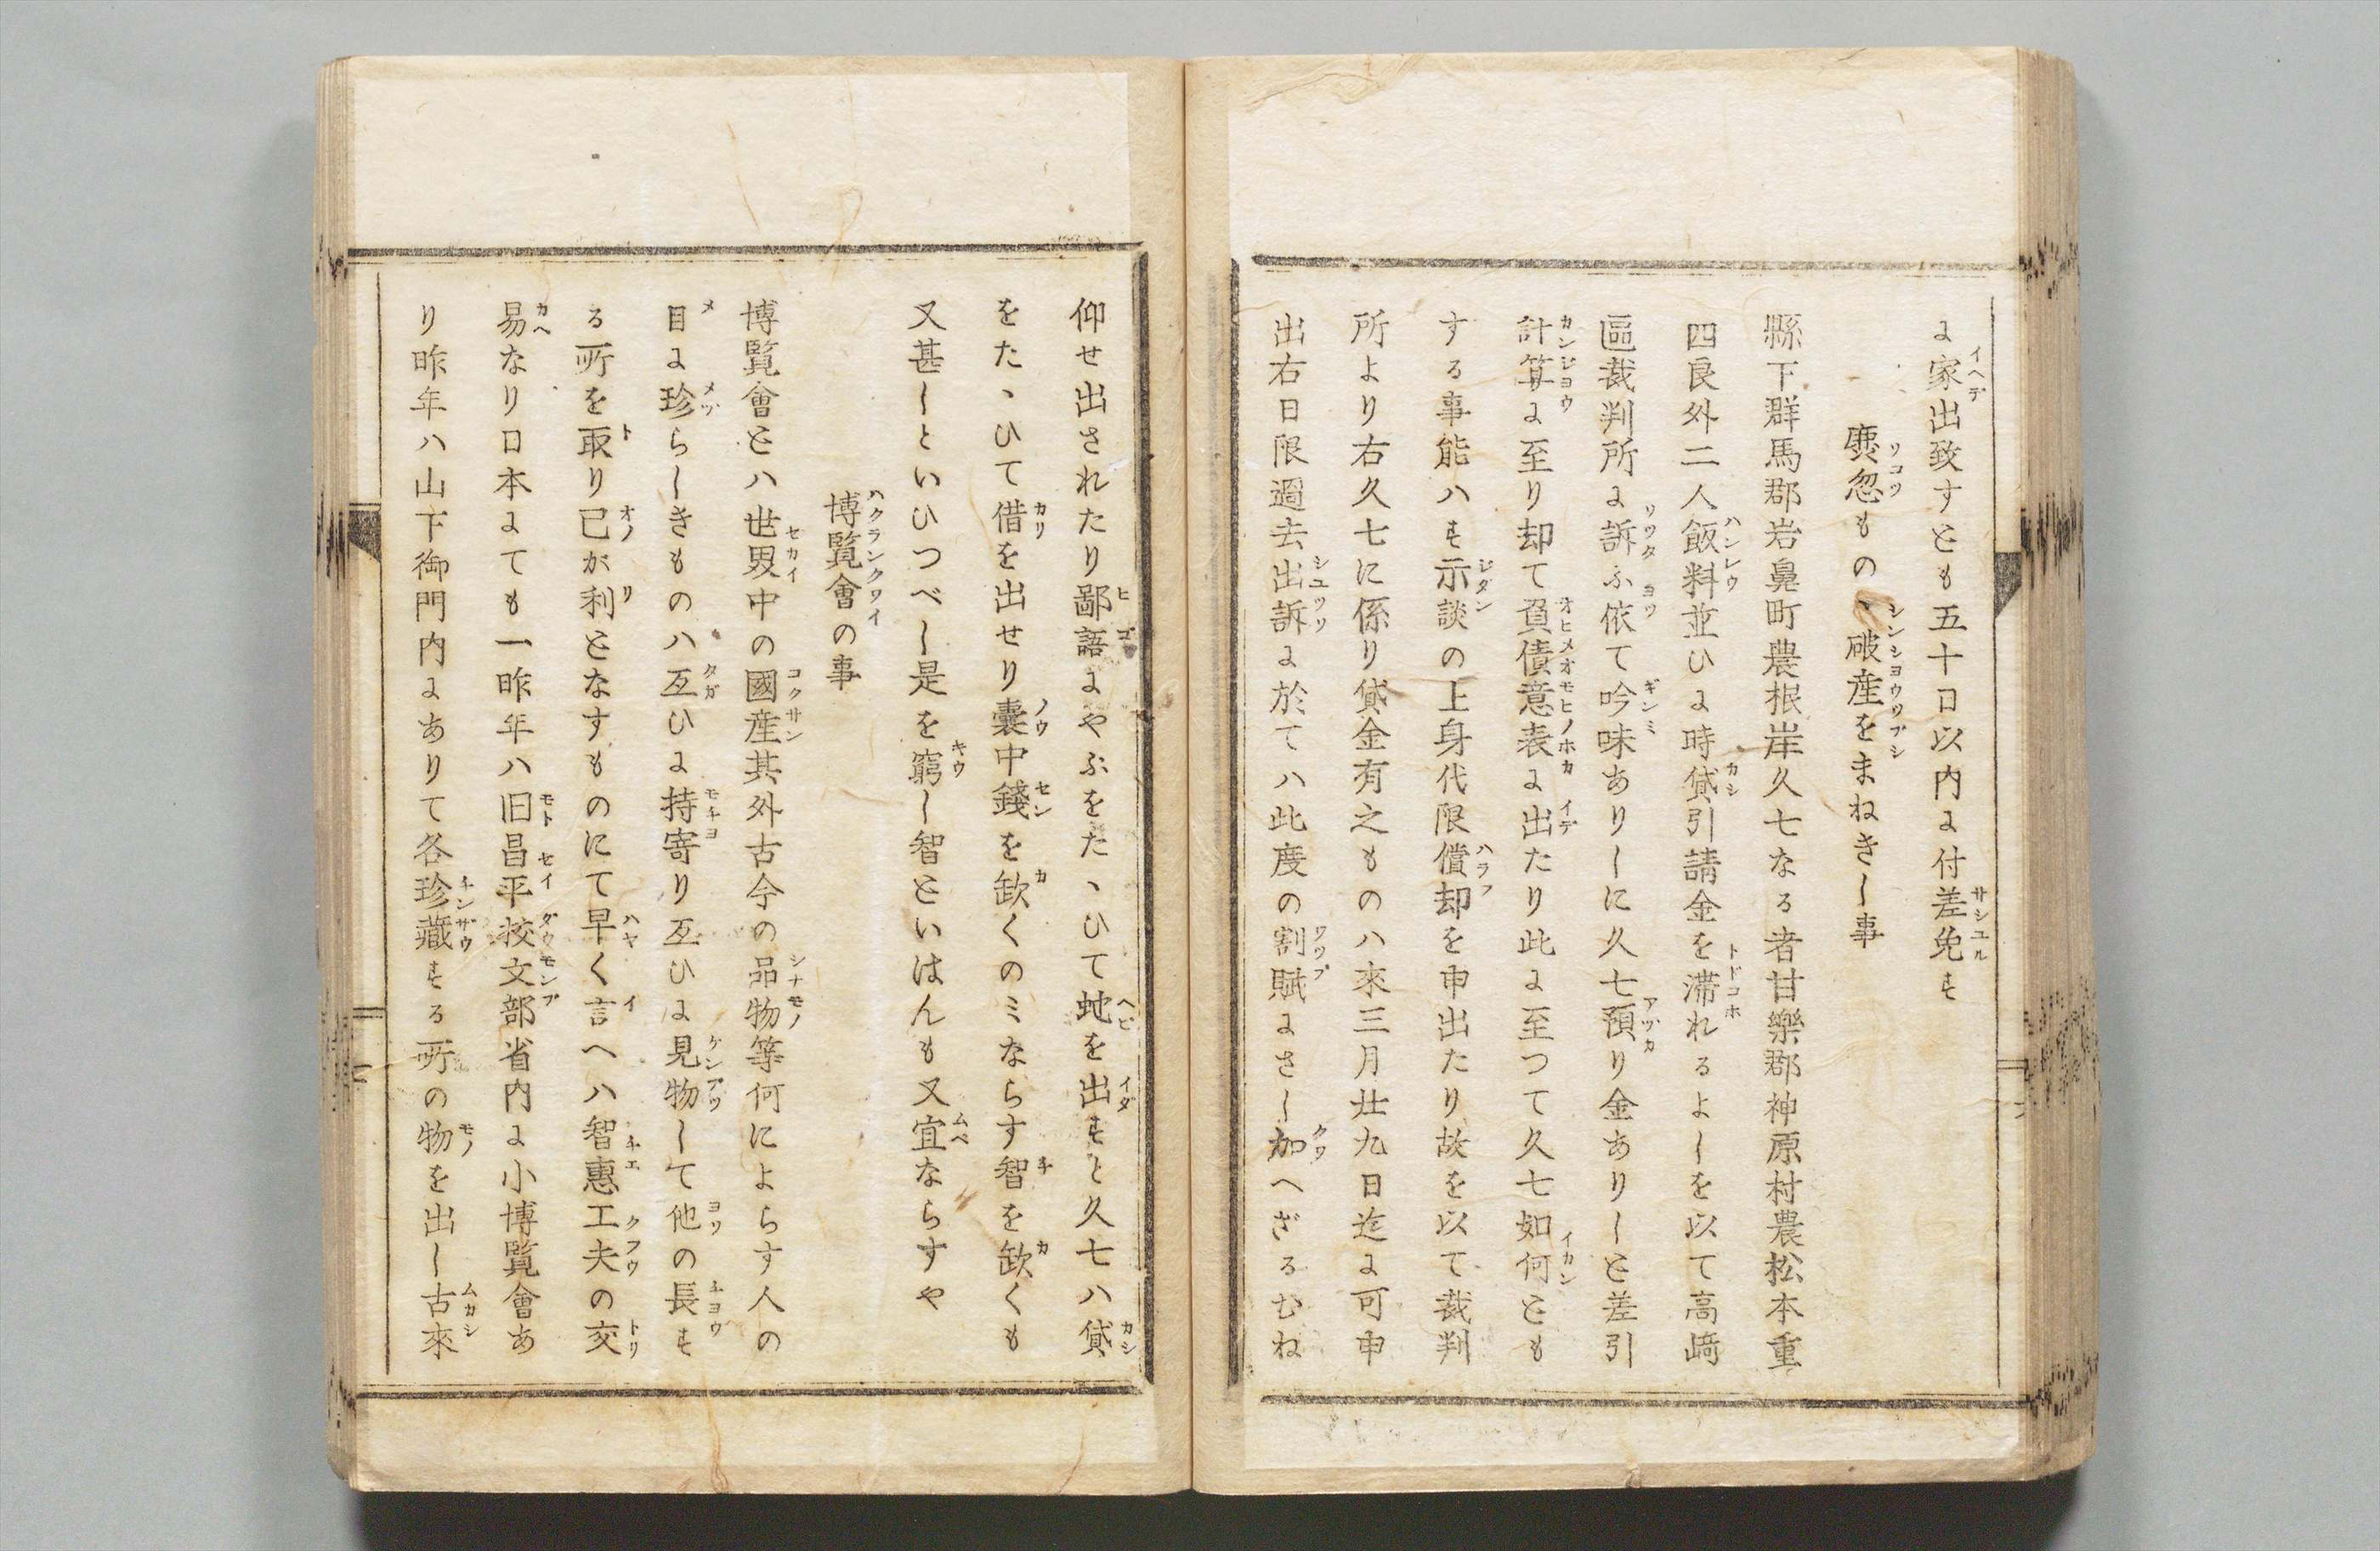 に家出致すとも五十日以内に付差免す
麁忽ものゝ破産をまねきし事
縣下群馬郡岩鼻町農根岸久七なる者甘樂郡神原村農松本重
四良外二人飯料並ひに時貸引請金を滞れるよしを以て高﨑
區裁判所に訴ふ依て吟味ありしに久七預り金ありしと差引
計算に至り却て負債意表に出たり此に至つて久七如何とも
する事能ハす示談の上身代限償却を申出たり故を以て裁判
所より右久七に係り貸金有之ものハ來三月廿九日迄に可申
出右日限過去出訴に於てハ此度の割賦にさし加へざるむね
仰せ出されたり鄙語にやぶをたゝひて蛇を出すと久七ハ貸
をたゝひて借を出せり嚢中錢を欽くのミならす智を欽くも
又甚しといひつべし是を窮し智といはんも又宜ならすや
博覧會の事
博覧會とハ世界中の國産其外古今の品物等何によらす人の
目に珍らしきものハ互ひに持寄り互ひに見物して他の長す
る所を取り己が利となすものにて早く言へハ智惠工夫の交
易なり日本にても一昨年ハ旧昌平挍文部省内に小博覧會あ
り昨年ハ山下御門内にありて各珍藏する所の物を出し古來